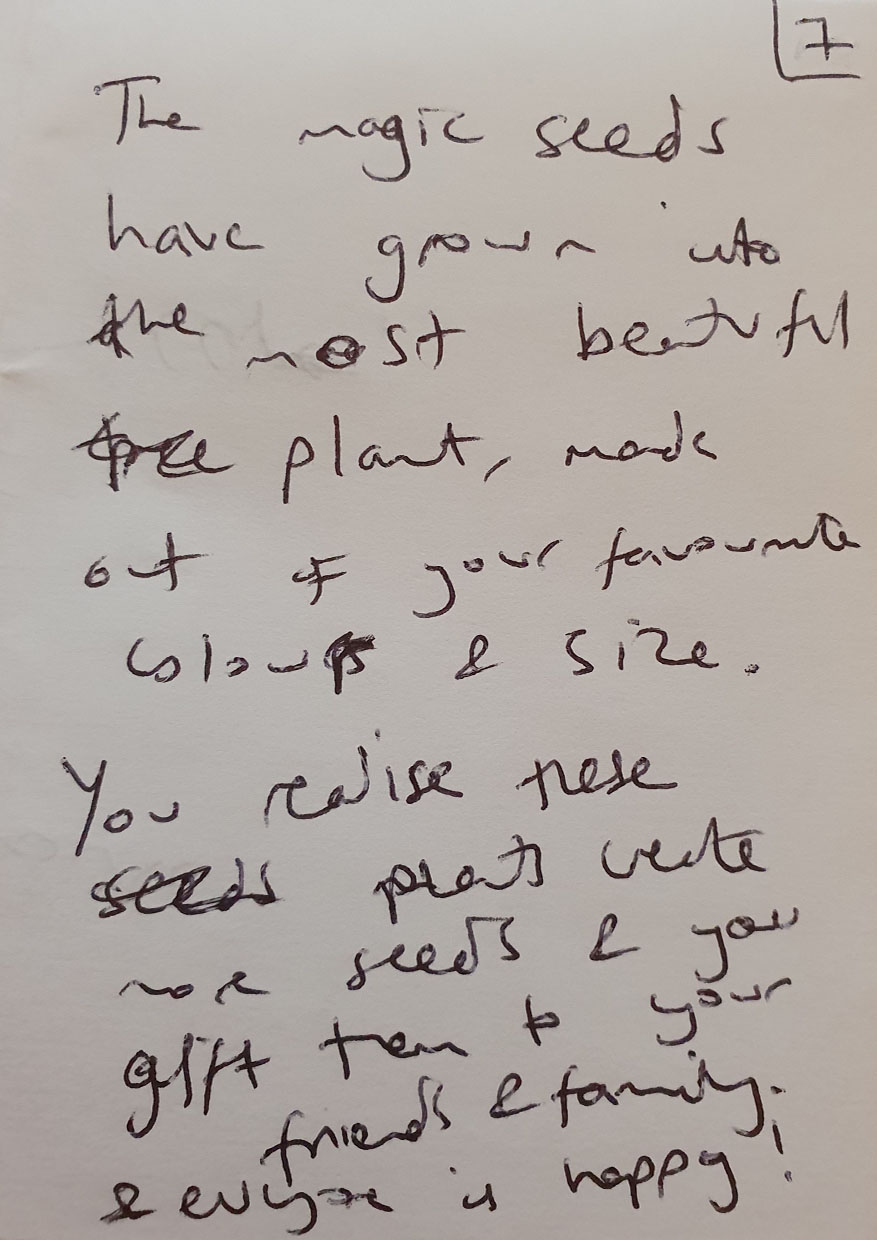 7
The magic seeds
have grown into
the most beatuful
tree plant, made
out of your favourite
colours & size.
You realise these
seeds plants create
more seeds & you
gift them to your
friends & family.
& everyone is happy!